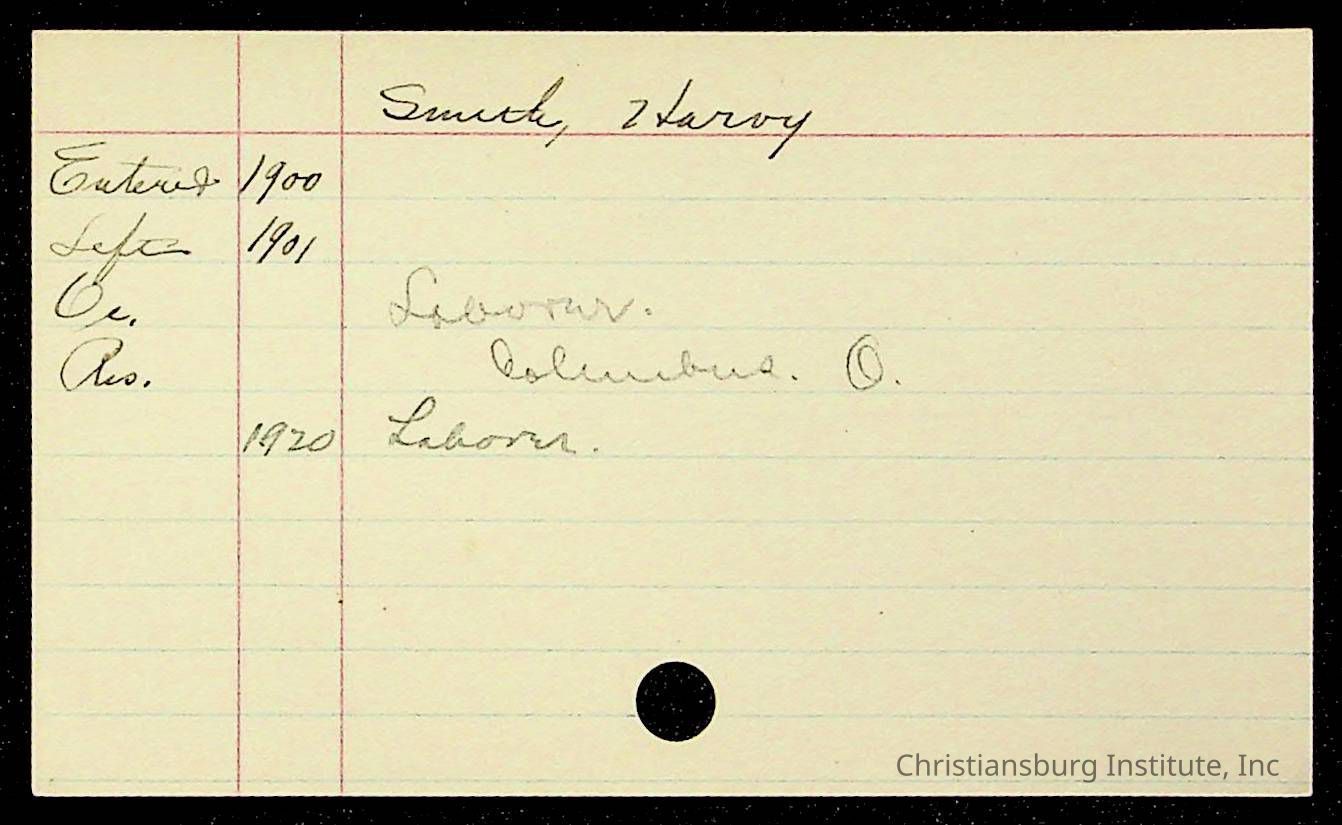 Smith, Harvy
Entered 1900
Left 1901
Oc. Laborer.
Res. Columbus. O.
1920 Laborer.
Christiansburg Institute, Inc